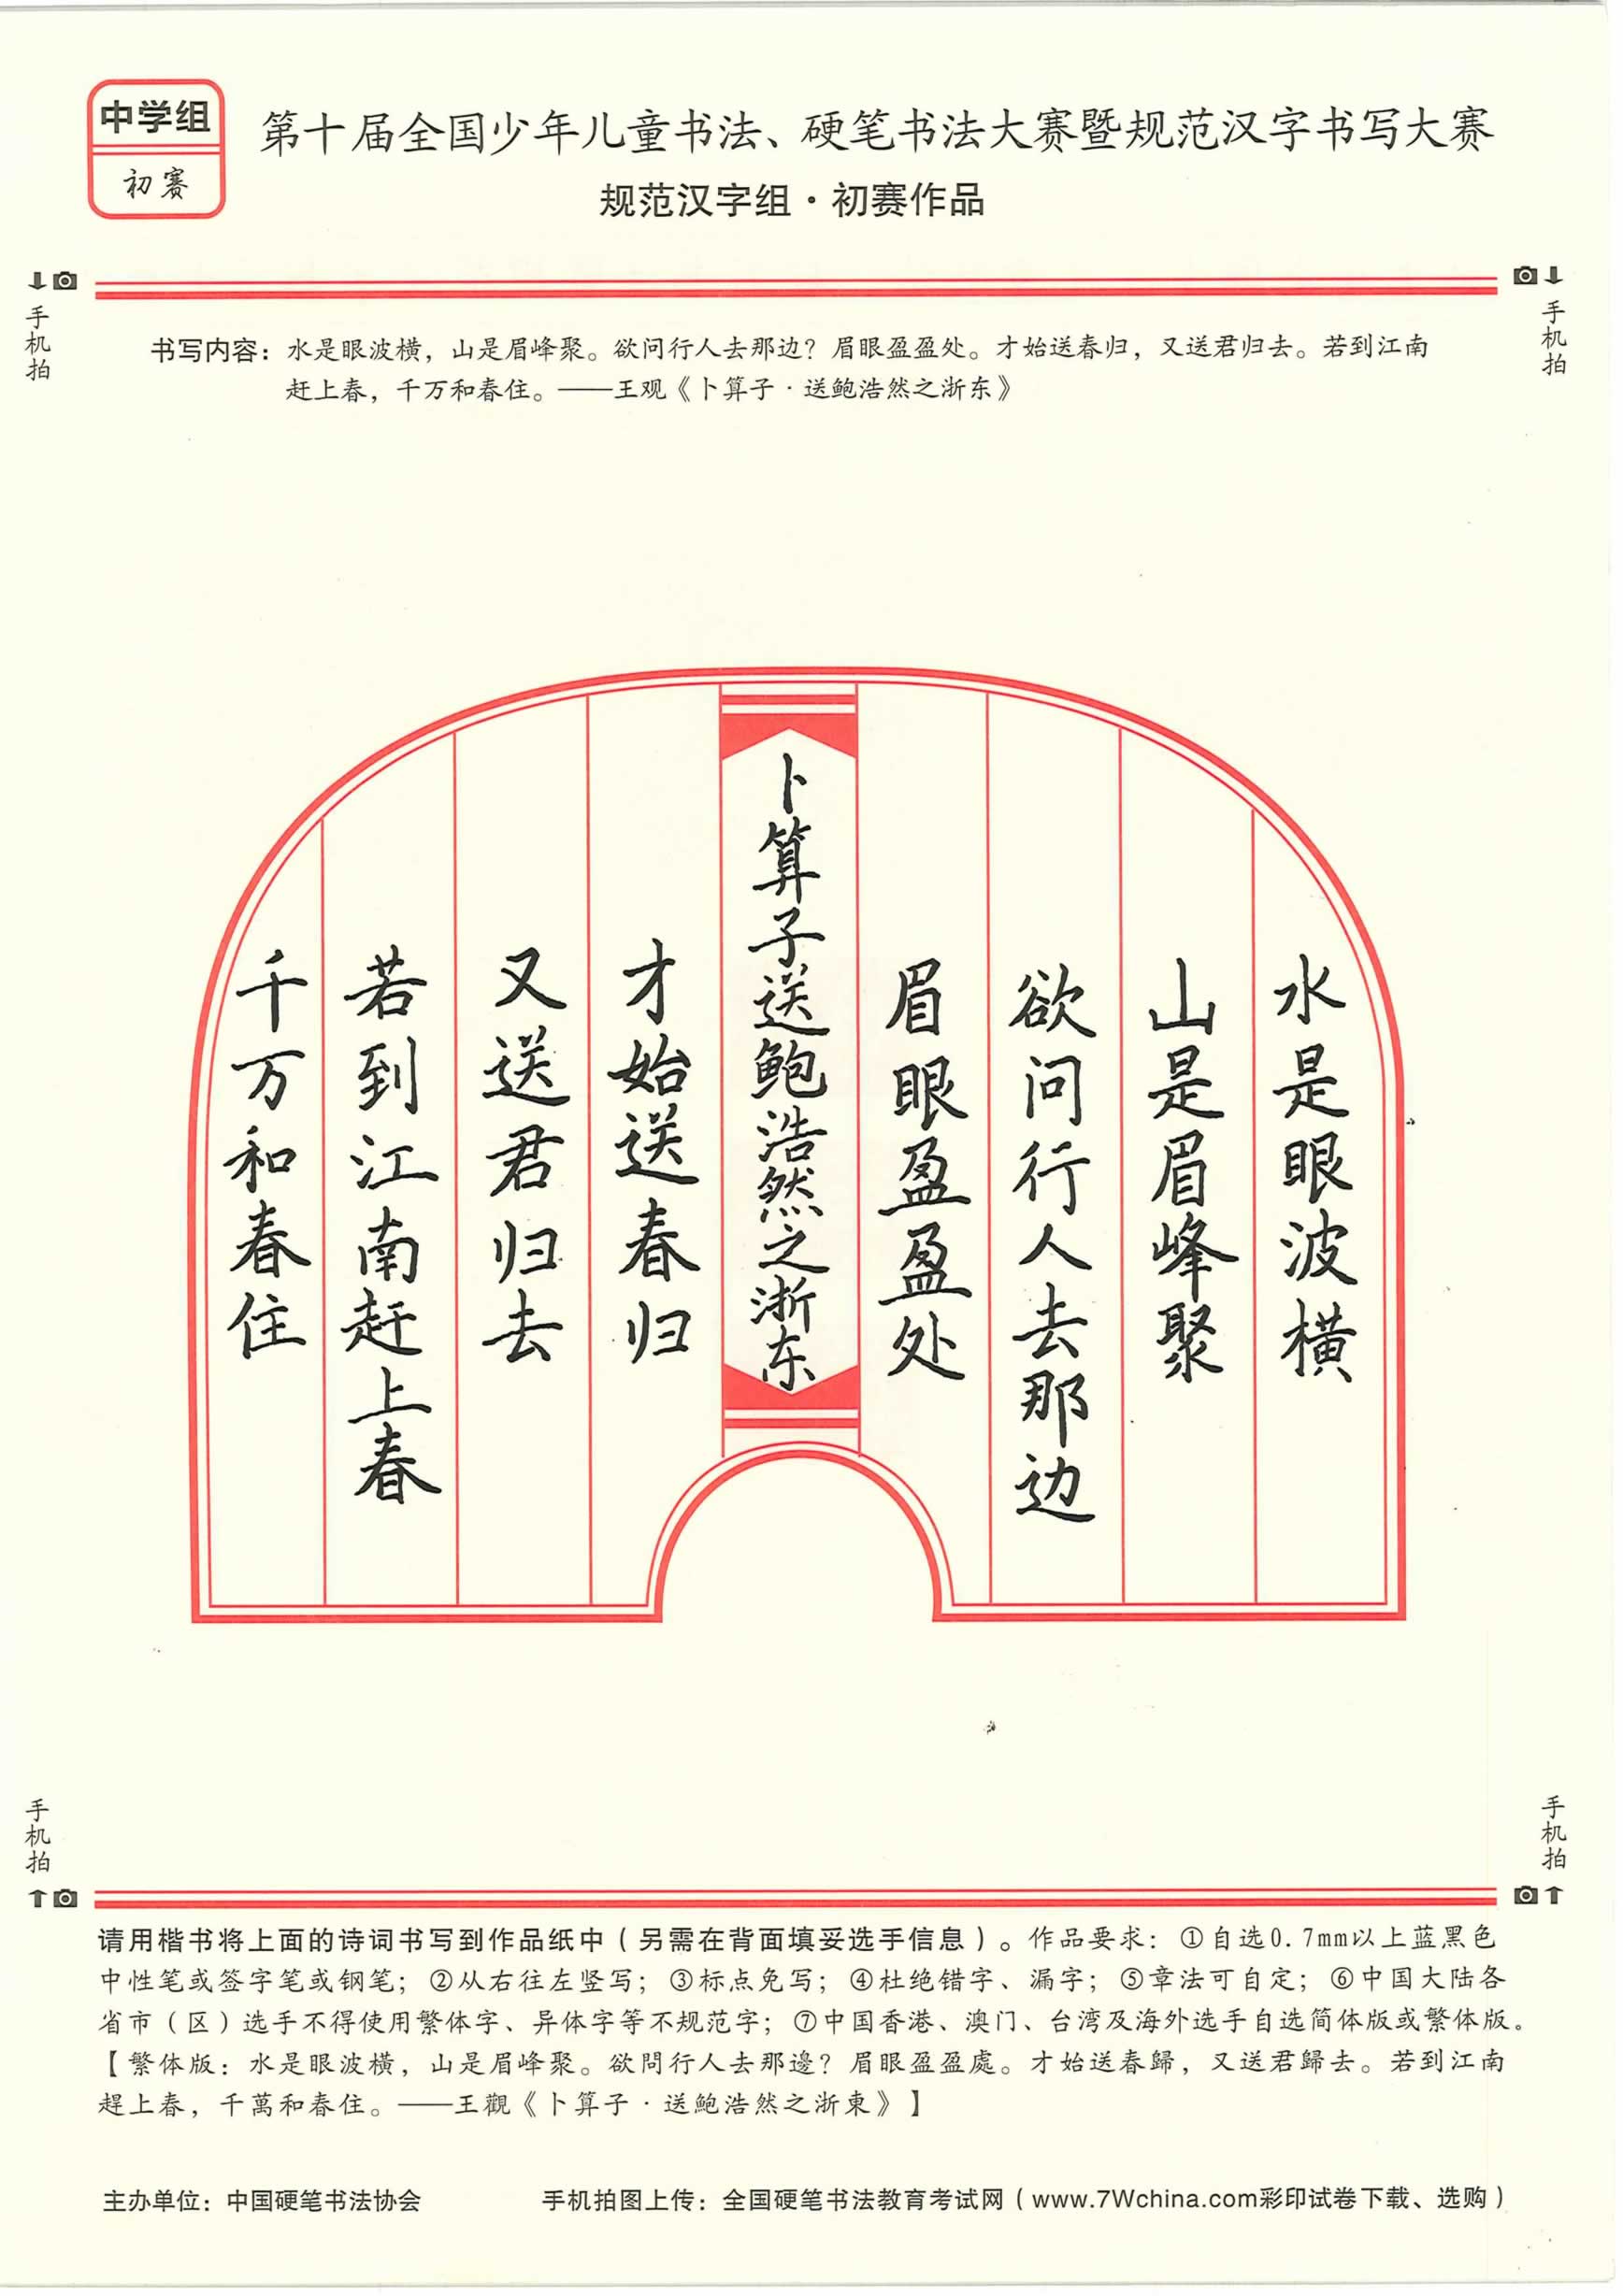 中学组
初赛
第十届全国少年儿童书法、硬笔书法大赛暨规范汉字书写大赛
规范汉字组·初赛作品
手机拍
手机拍
书写内容：水是眼波横，山是眉峰聚。欲问行人去那边？眉眼盈盈处。才始送春归，又送君归去。若到江南
赶上春，千万和春住。——王观《卜算子·送鲍浩然之浙东》
水是眼波横
山是眉峰聚
欲问行人去那边
眉眼盈盈处
卜算子送鲍浩然之浙东
才始送春归
又送君归去
若到江南赶上春
千万和春住
手机拍
手机拍
请用楷书将上面的诗词书写到作品纸中（另需在背面填妥选手信息）。作品要求：①自选0.7mm以上蓝黑色
中性笔或签字笔或钢笔；②从右往左竖写；③标点免写；④杜绝错字、漏字；⑤章法可自定；⑥中国大陆各
省市（区）选手不得使用繁体字、异体字等不规范字；⑦中国香港、澳门、台湾及海外选手自选简体版或繁体版。
【繁体版：水是眼波橫，山是眉峰聚。欲問行人去那邊？眉眼盈盈處。才始送春歸，又送君歸去。若到江南
趕上春，千萬和春住。——王觀《卜算子·送鮑浩然之浙東》】
主办单位：中国硬笔书法协会
手机拍图上传：全国硬笔书法教育考试网（www.7Wchina.com彩印试卷下载、选购）